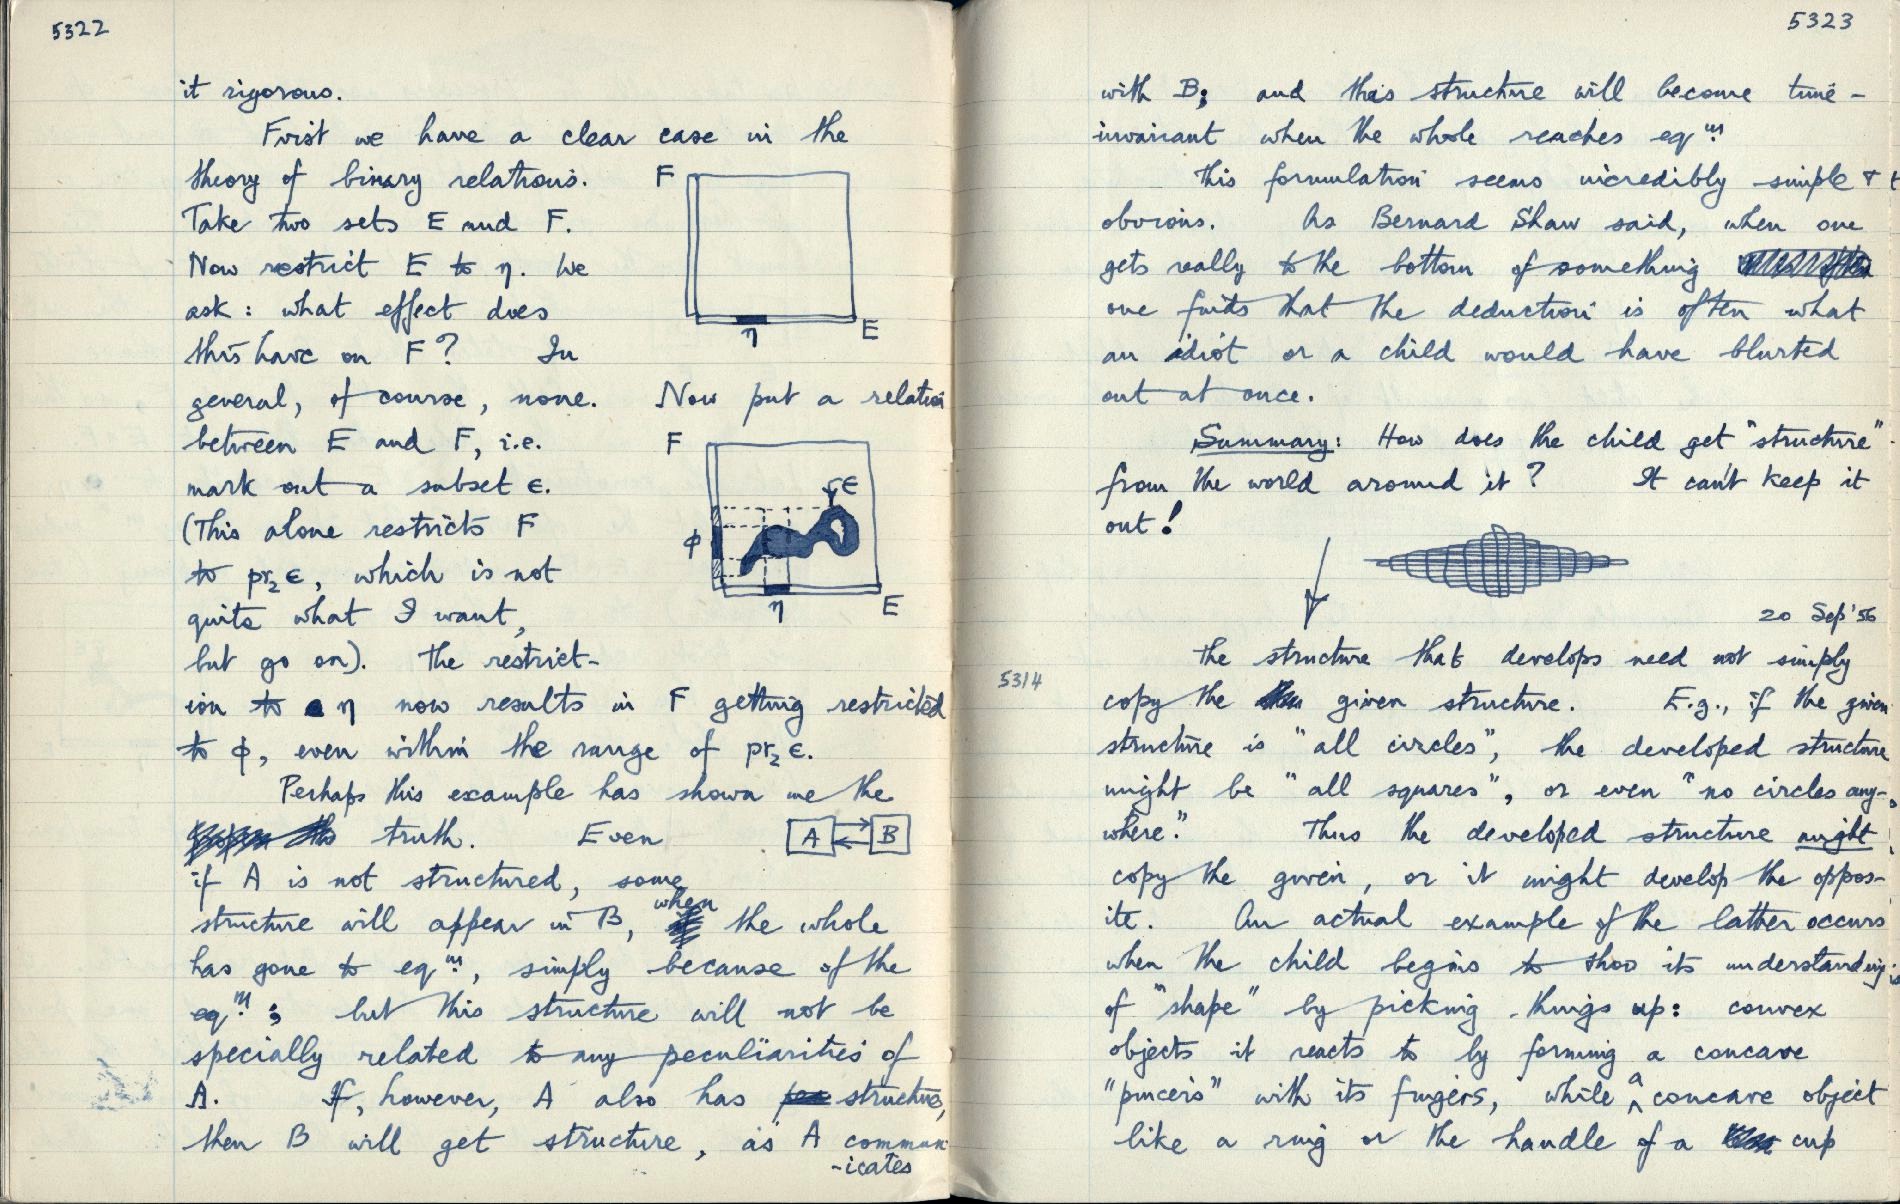 5322
it rigorous.
First we have a clear case in the
theory of binary relations.
Take two sets E and F.
Now restrict E to η. We
ask: what effect does
this have on F? In
general, of course, none. Now put a relation
between E and F, i.e.
mark out a subset ϵ.
(This alone restricts F
to pr₂ϵ, which is not
quite what I want,
but go on). The restrict-
ion to η now results in F getting restricted
to ϕ, even within the range of pr₂ϵ.
Perhaps this example has shown me the
truth. Even
if A is not structured, some
structure will appear in B, when the whole
has gone to eqᵐ, simply because of the
eqᵐ; but this structure will not be
specially related to any peculiarities of
A. If, however, A also has structure,
then B will get structure, as A commun
-icates
F
E
η
F
ϵ
ϕ
η
E
A
B
5323
with B; and this structure will become time-
invariant when the whole reaches eqᵐ.
This formulation seems incredibly simple +
obvious. As Bernard Shaw said, when one
gets really to the bottom of something
one finds that the deduction is often what
an idiot or a child would have blurted
out at once.
Summary: How does the child get "structure"
from the world around it? It can't keep it
out!
20 Sep '56
5314
The structure that develops need not simply
copy the given structure. E.g., if the given
structure is "all circles", the developed structure
might be "all squares", or even "no circles any-
where". Thus the developed structure might
copy the given, or it might develop the oppos-
ite. An actual example of the latter occurs
when the child begins to show its understanding
of "shape" by picking things up: convex
objects it reacts to by forming a concave
"pincers" with its fingers, while a concave object
like a ring or the handle of a cup